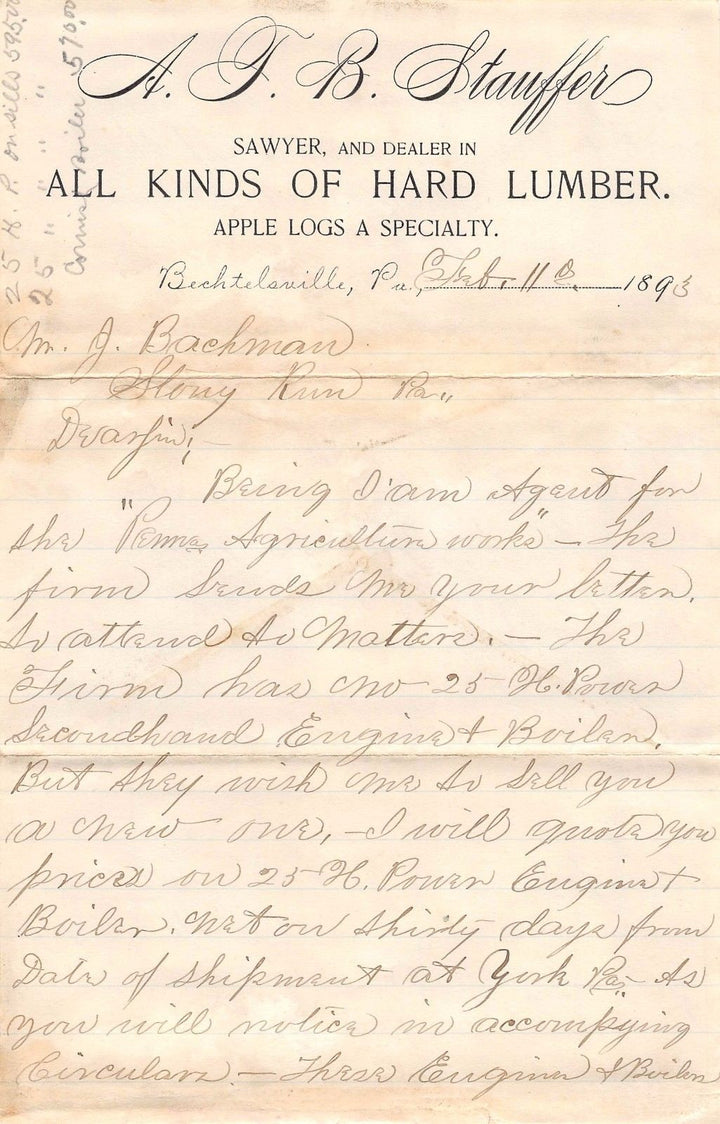 25 H. P. on sills 595.00
25 " " " "
Cornish Boiler 570.00
A. F. B. Stauffer
SAWYER, AND DEALER IN
ALL KINDS OF HARD LUMBER.
APPLE LOGS A SPECIALTY.
Bechtelsville, Pa., Feb. 11th 1893
Mr. J. Bachman
Stony Run Pa.,
Dearsir;—
Being I'am Agent for
the "Penna Agriculture works" — The
firm Sends Me your letter.
to attend to Matters. — The
Firm has no 25 H. Power
Secondhand Engine & Boiler.
But they wish me to Sell you
a new one, — I will quote you
prices on 25 H. Power Engine &
Boiler. net on thirty days from
Date of shipment at York Pa. As
you will notice in accompying
Circulars. — These Engine & Boiler